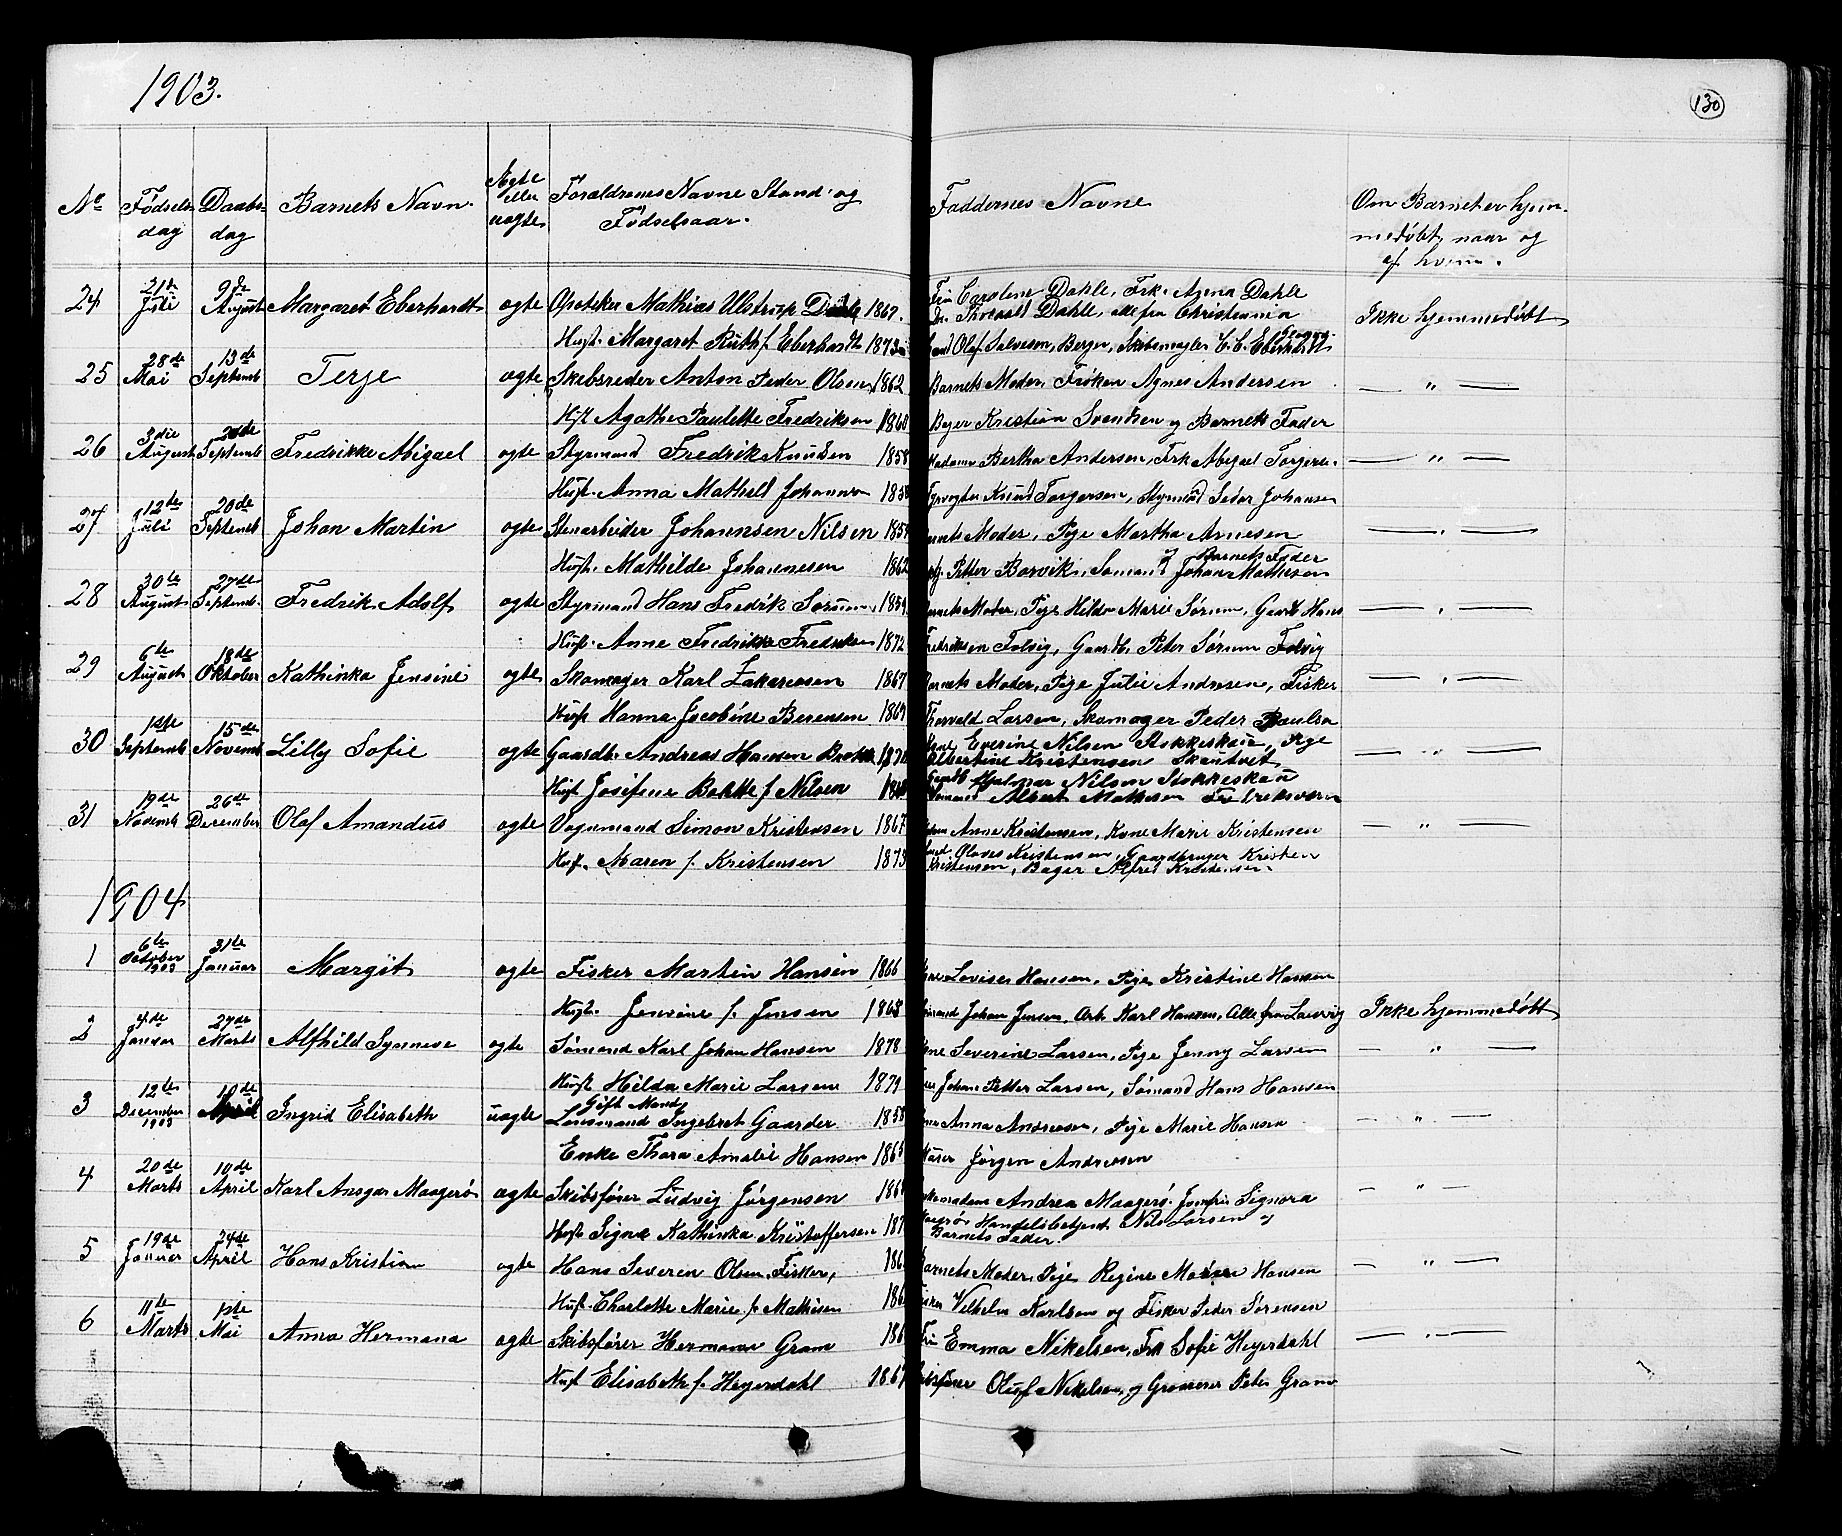 1903.
130
No
Fødsels-
dag
Daabs-
dag
Barnets Navn.
Ægte
eller
uægte
Forældrenes Navne Stand og
Fødselsaar.
Faddernes Navne
Om Barnet er hjem-
medøbt, naar og
af hvem.
24 21de Juli 9de August Margaret Eberhardt ægte Apoteker Mathias Ulstrup Dahle 1867. Fru Caroline Dahle, Frk. Agena Dahle
Dr. Thorvald Dahle, alle fra Christiania Ikke hjemmedøbt
Hust. Margaret Ruth f. Eberhardt 1873 Olaf Salvesen, Berger, Skibsmægler C. C. Eberhardt
25 28de Mai 13de Septemb Terje ægte Skibsreder Anton Peder Olsen 1862 Barnets Moder, Frøken Agnes Andersen — " —
Hust Agathe Paulette Fredriksen 1868 Kristian Svendsen og Barnets Fader
26 3die August 20de Septemb Fredrikke Abigael ægte Styrmand Fredrik Knudsen 1858 Madame Bertha Andersen, Frk Abigael Torgers. — " —
Hust. Anna Mathild Johannesen Fyrvogter Knud Torgersen, Styrmand Peder Johansen
27 12te Juli 20de Septemb Johan Martin ægte Stenarbeider Johannsen Nilsen 1859 Moder, Pige Martha Arnesen — " —
Hust. Mathilde Johannesen 1862 Petter Barvik, Sømand Johan Mathisen
og Barnets Fader
28 30te August 27de Septemb. Fredrik Adolf ægte Styrmand Hans Fredrik Sørum 1859 Moder, Pige Hilda Marie Sørum, Gaardb Hans — " —
Hust. Anne Fredrikke Fredriksen 1872 Fredriksen Folvig, Gaardb. Peter Sørum Folvig
29 6te August 18de Oktober Kathinka Jensine ægte Skomager Karl Zakariasen 1867 Barnets Moder, Pige Julie Andresen, Fisker — " —
Hust Hanna Jacobine Berensen 1869 Thorvald Larsen, Skomager Peder Paulsen
30 1ste Septemb 15de Novemb Lilly Sofie ægte Gaardb. Andreas Hansen Everine Nilsen Stokkeskau, Pige
Albertine Kristensen Skautvet — " —
Hust Josefine f. Nilsen Gaardb Hjalmar Nilsen Stokkeskau
Sømand Albert Mathisen Fredriksværn
31 19de Novemb 26de December Olaf Amandus ægte Vognmand Simon Kristensen 1867 Anne Kristensen, Kone Marie Kristensen — " —
Hust. Maren f. Kristensen 1873 Olaves Kristensen, Gaardbruger Kristen
Kristensen, Bager Alfred Kristensen.
1904
1 6te October 1903 31te Januar Margit ægte Fisker Martin Hansen 1866 Lovise Hansen, Pige Kristine Hansen
Hust. Jensine f. Jensen 1868 Johan Jensen, Arb. Karl Hansen, Alle fra Laurvig Ikke hjemmedøbt
2 4de Januar 27de Marts Alfhild Synneve ægte Sømand Karl Johan Hansen 1878 Kone Severine Larsen, Pige Jenny Larsen — " —
Hust Hilda Marie Larsen 1879 Johan Petter Larsen, Sømand Hans Hansen
3 12te December 1903 10de April Ingrid Elisabeth uægte Gift Mand
Lensmand Ingebret Gaarder 1858 Anna Andresen, Pige Marie Hansen — " —
Enke Thora Amalie Hansen 1865 Murer Jørgen Andresen
4 20de Marts 10de April Karl Ansgar Maagerø ægte Skibsfører Ludvig Jørgensen Andrea Maagerø, Jomfru Signora — " —
Hust Signe Kathinka Kristoffersen Maagerø Handelsbetjent Nils Larsen og
Barnets Fader.
5 19de Januar 24de April Hans Kristian ægte Hans Severin Olsen, Fisker, Barnets Moder, Pige Regine Hansen — " —
Hust. Charlotte Marie f. Mathisen Fisker Vilhelm Karlsen og Fisker Peder Sørensen
6 11te Marts 1ste Mai Anna Hermana ægte Skibsfører Hermann Gram Fru Emma Nikelsen, Frk Sofie Heyerdahl — " —
Hust Elisabeth f. Heyerdahl 1867 Skibsfører Oluf Nikelsen, og Grosserer Peter Gram